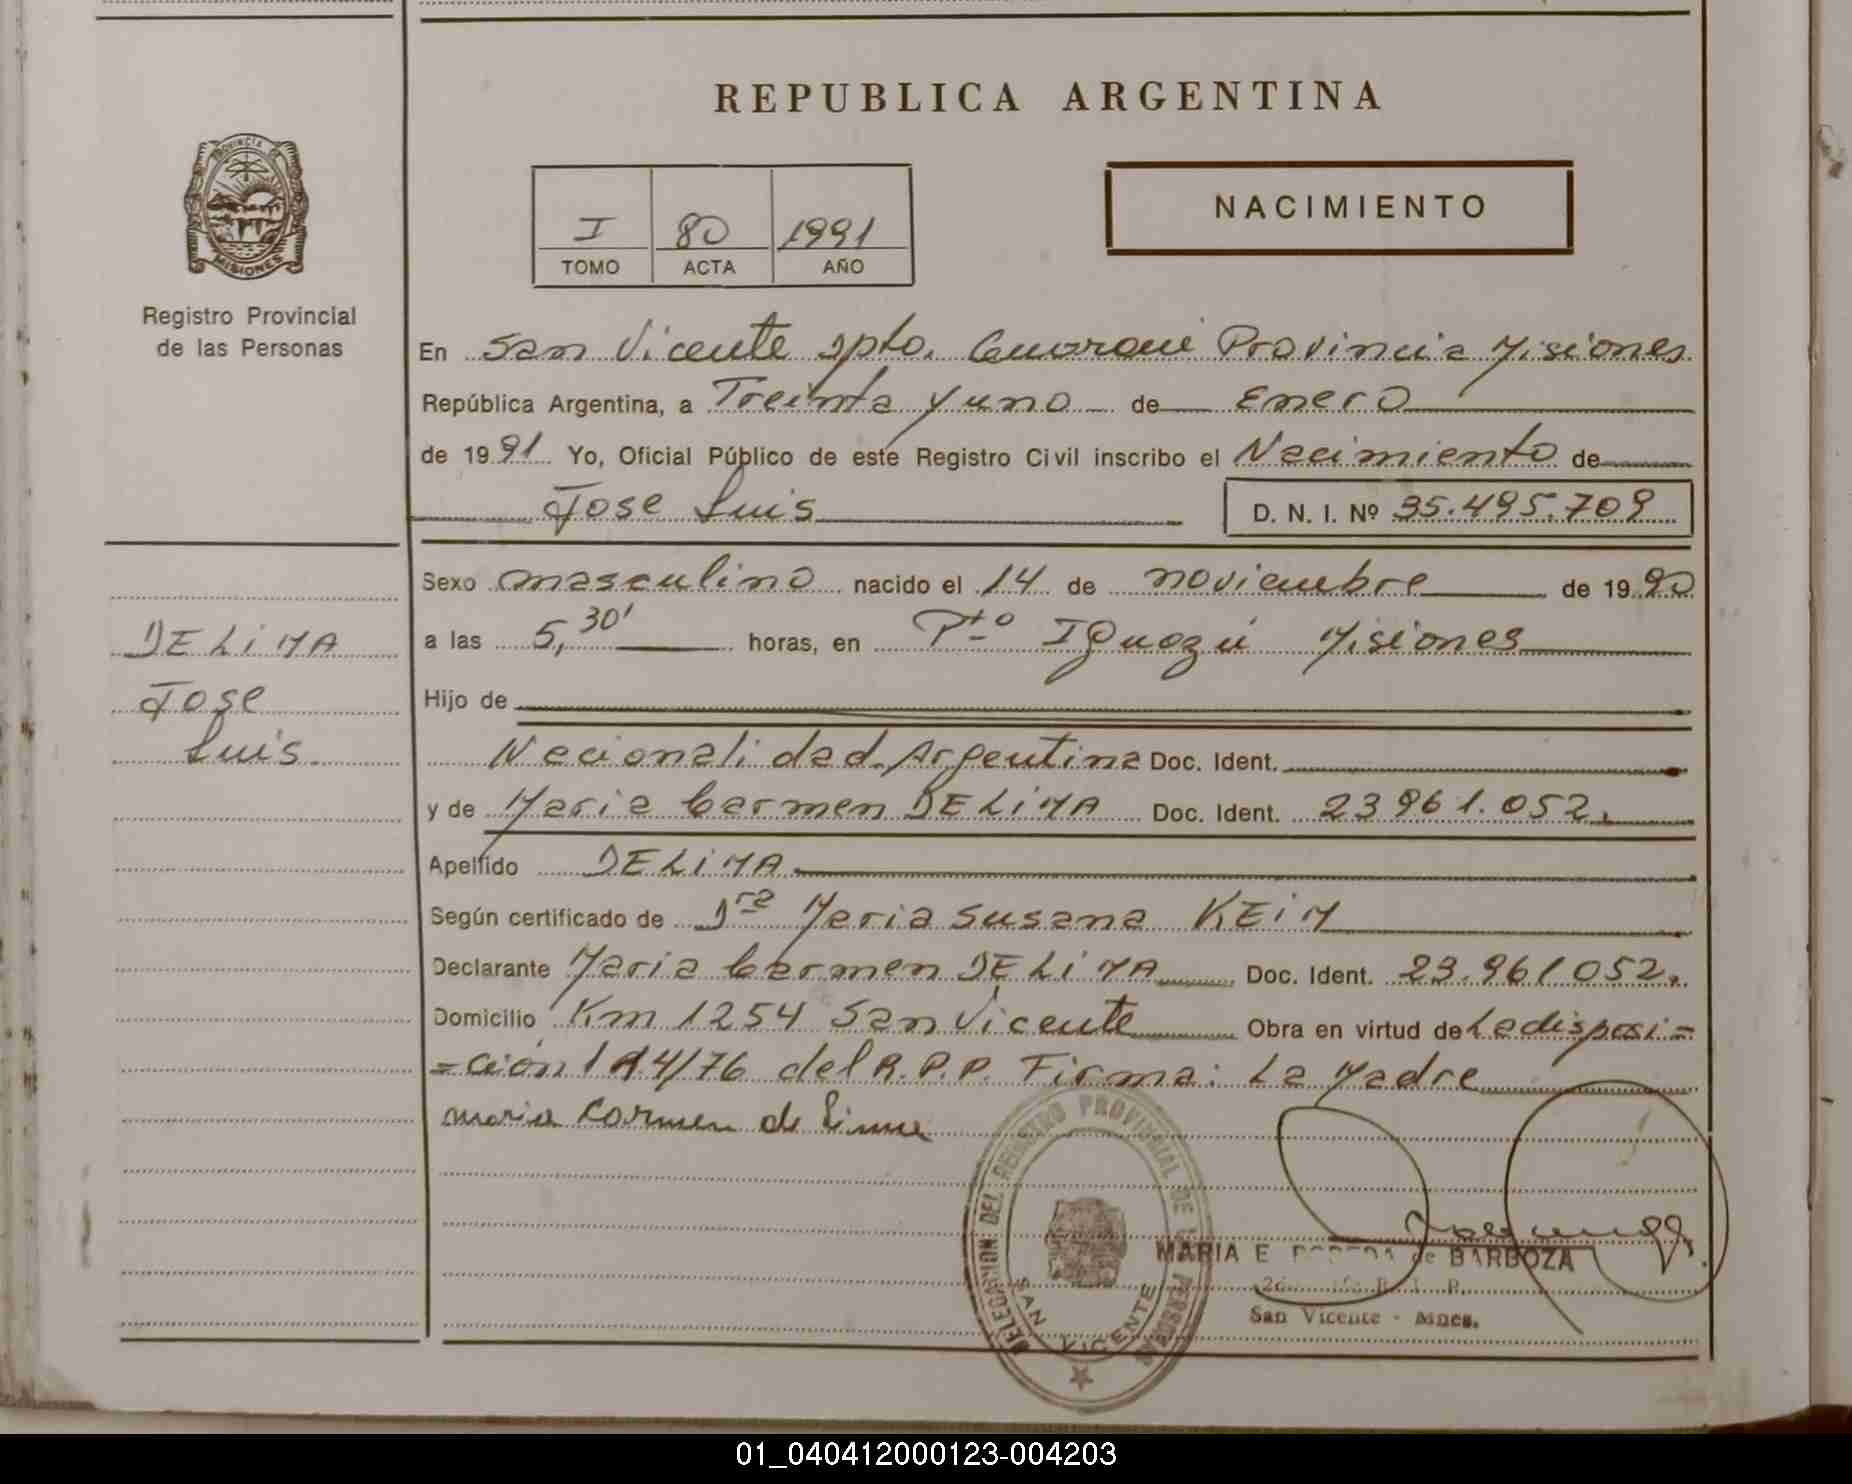 REPUBLICA ARGENTINA
PROVINCIA DE
MISIONES
Registro Provincial
de las Personas
I 80 1991
TOMO ACTA AÑO
NACIMIENTO
En San Vicente Dpto. Guarani Provincia Misiones
República Argentina, a Treinta y uno de Enero
de 1991 Yo, Oficial Público de este Registro Civil inscribo el Nacimiento de
Jose Luis D. N. I. Nº 35.495.709
Sexo masculino nacido el 14 de noviembre de 1990
a las 5,30' horas, en Pto Iguazú Misiones
Hijo de
Nacionalidad Argentina Doc. Ident.
y de Maria Carmen DE LiMA Doc. Ident. 23961.052.
Apellido DE LiMA
Según certificado de Dra Maria Susana KEiM
Declarante Maria Carmen DE LiMA Doc. Ident. 23.961052.
Domicilio Km 1254 San Vicente Obra en virtud de La disposi=
=ción 114/76 del R.P.P. Firma: La Madre
maria Carmen de Lima
DE LiMA
Jose
Luis.
DELEGACION DEL REGISTRO PROVINCIAL DE LAS PERSONAS
SAN VICENTE
MARIA E. de BARBOZA
San Vicente - Mnes.
01_040412000123-004203